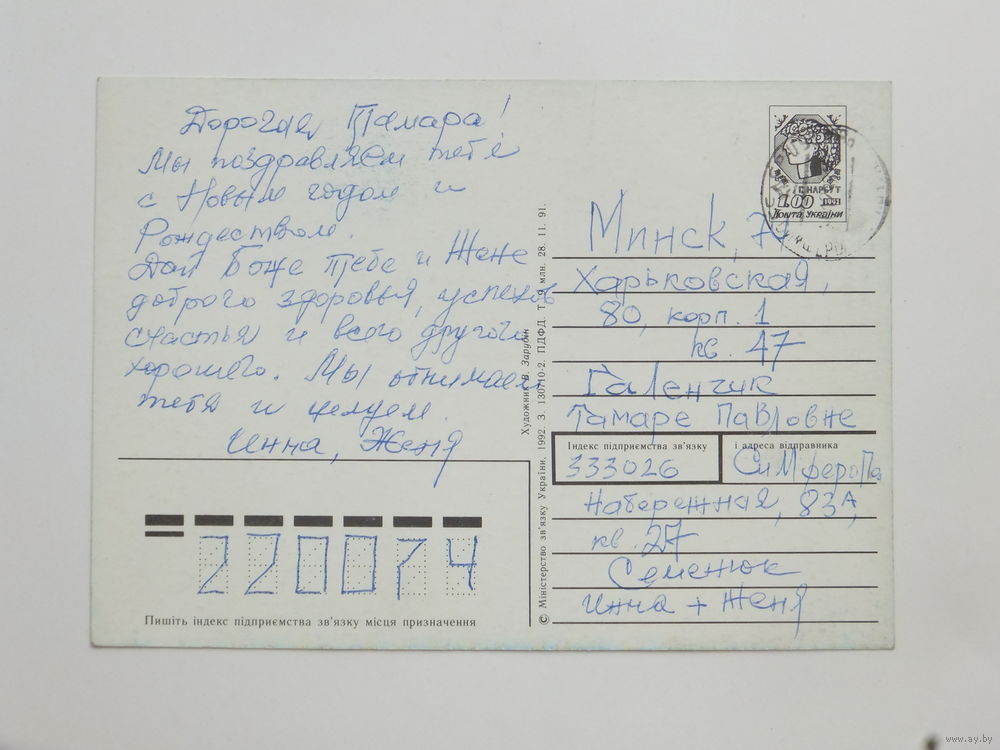 Дорогая Тамара!
Мы поздравляем тебя
с Новым годом и
Рождеством.
Дай Боже тебе и Жене
доброго здоровья, успехов
счастья и всего другого
хорошего. Мы обнимаем
тебя и целуем.
Инна, Женя
220074
Пишіть індекс підприємства зв'язку місця призначення
© Міністерство зв'язку України. 1992. З. 130710-2. ПДФД. Т. 9 млн. 28. 11. 91.
Художник В. Зарубін
Г. НАРБУТ
1.00 1992
Пошта України
Минск, 74
Харьковская,
80, корп. 1
кв. 47
Галенчик
Тамаре Павловне
Індекс підприємства зв'язку
333026
і адреса відправника
Симферопо
Набережная, 83А,
кв. 27
Семенюк
Инна + Женя
www.ay.by